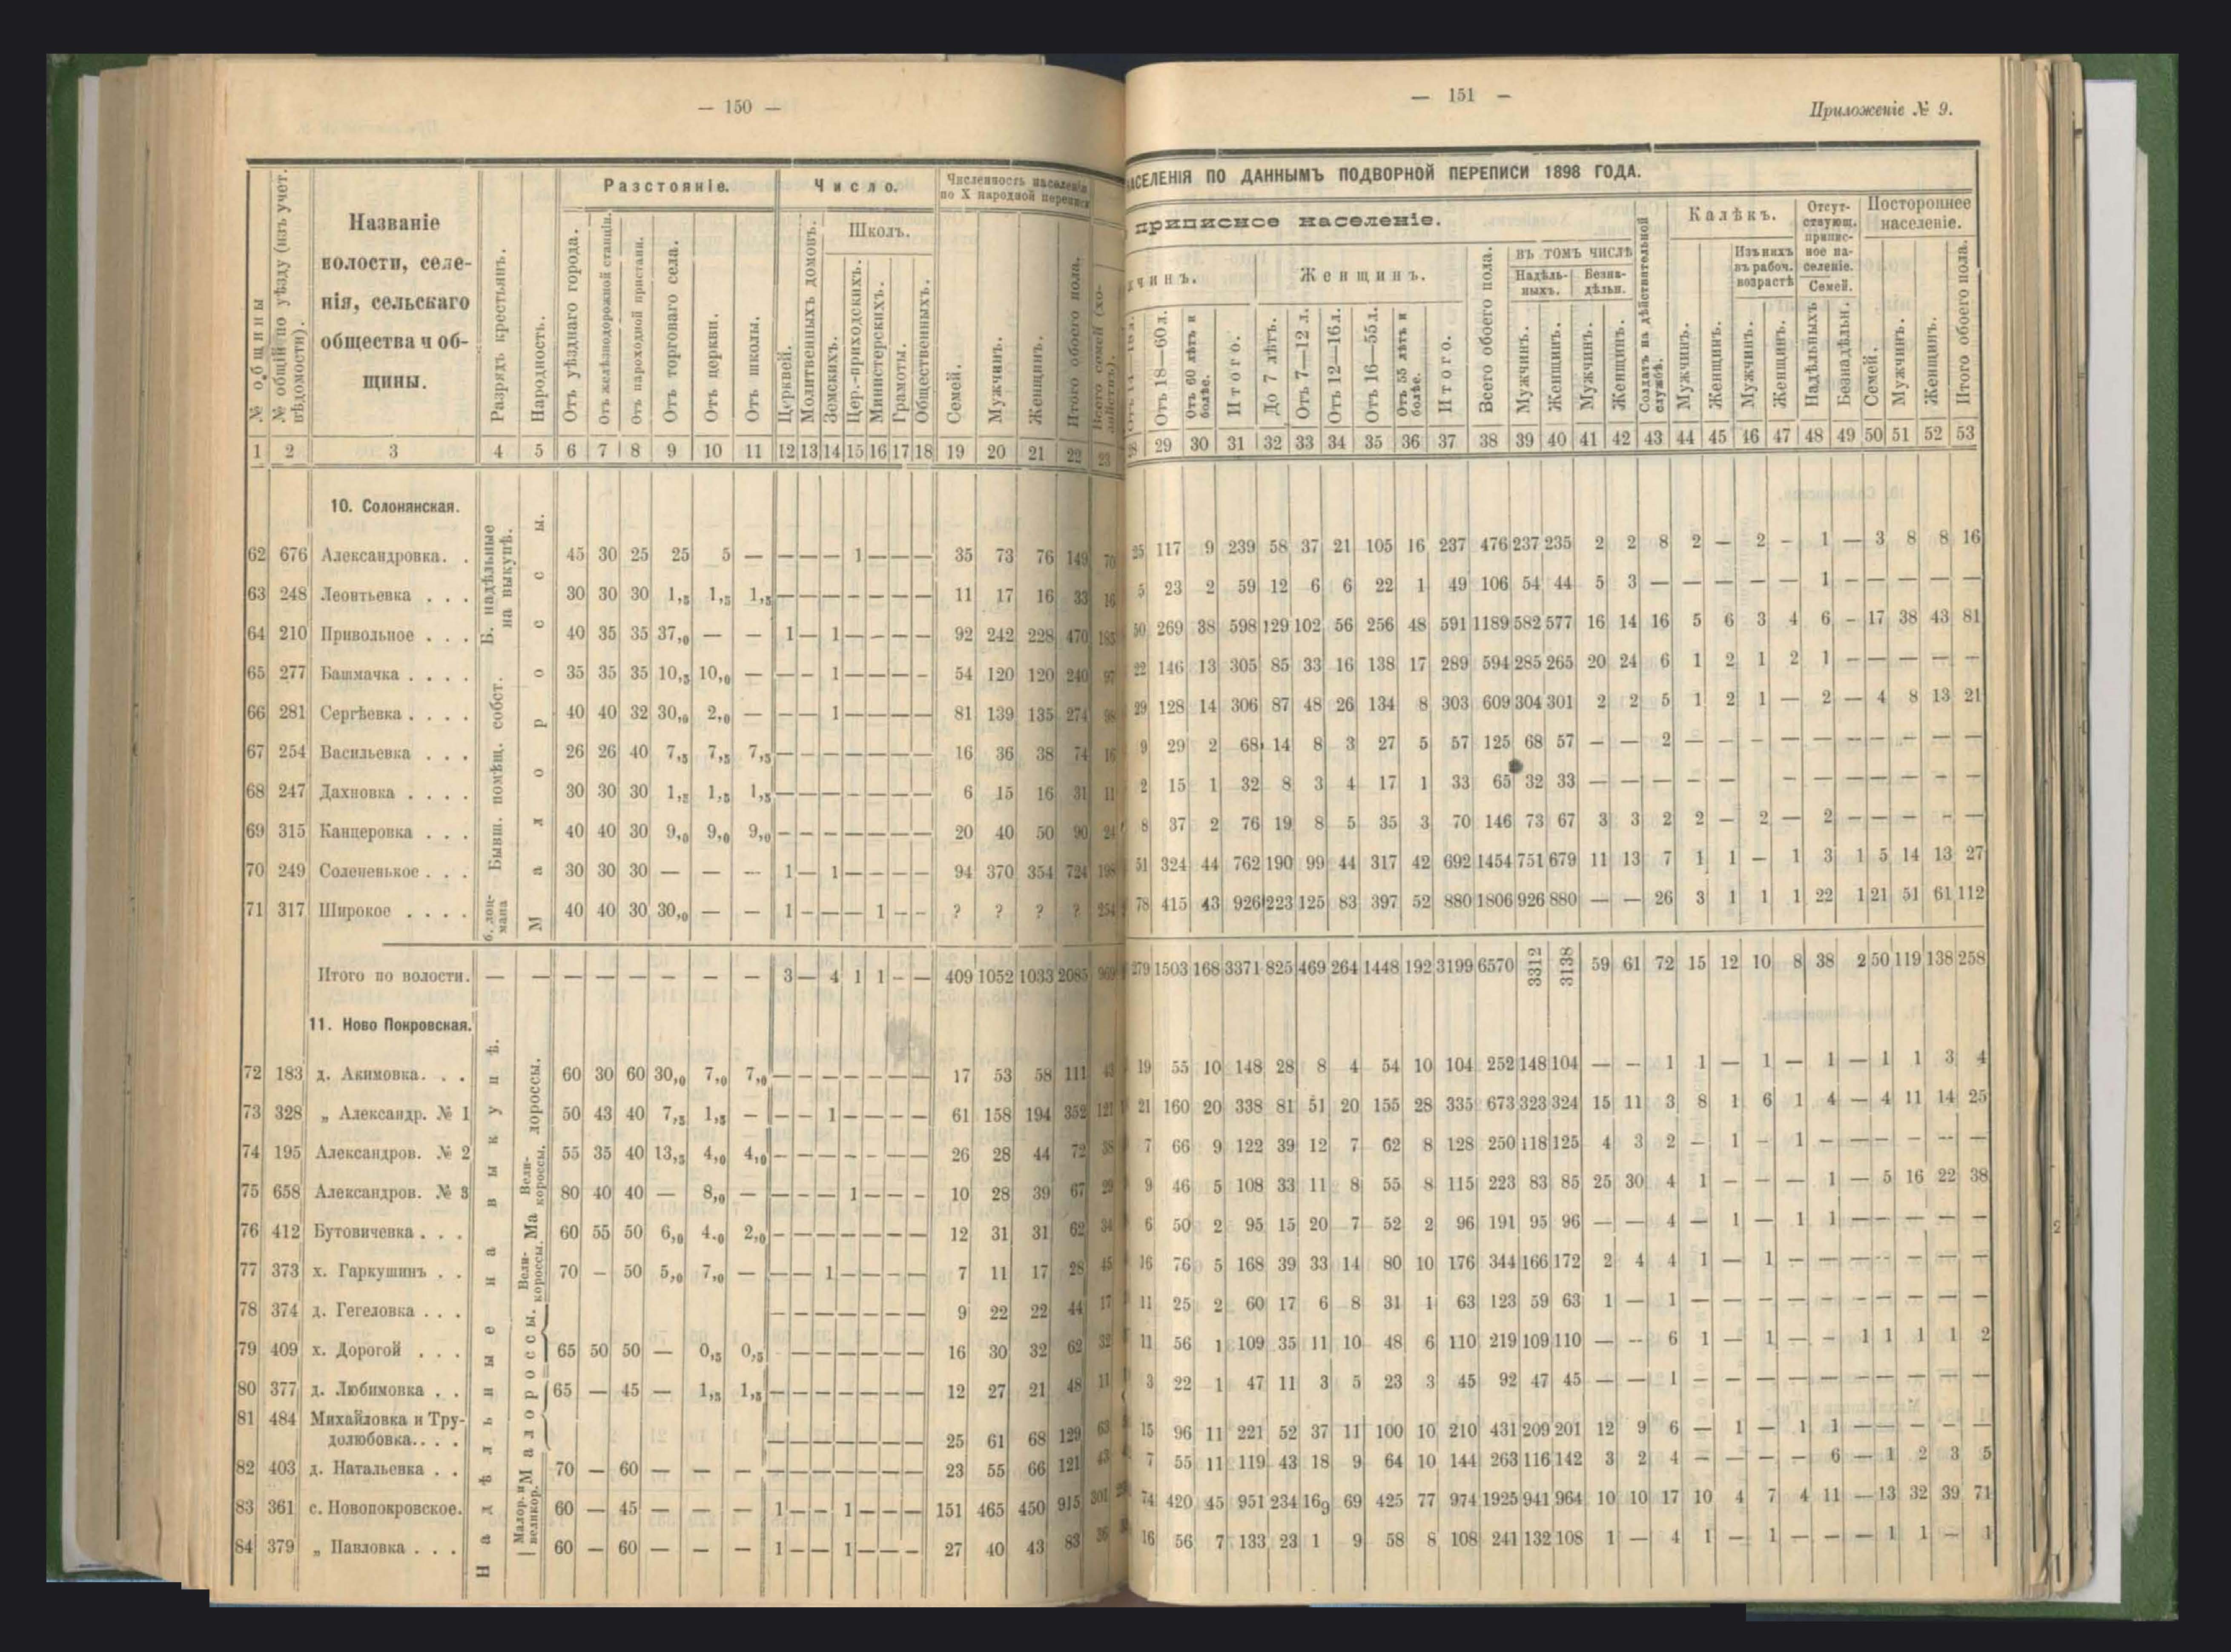 — 150 —
Разстояніе.
Число.
Численность населенія
по X народной переписи
Школъ.
№ общины
№ общій по уѣзду (изъ учет. вѣдомости).
Названіе
волости, селе-
нія, сельскаго
общества и об-
щины.
Разрядъ крестьянъ.
Народность.
Отъ уѣзднаго города.
Отъ желѣзнодорожной станціи.
Отъ пароходной пристани.
Отъ торговаго села.
Отъ церкви.
Отъ школы.
Церквей.
Молитвенныхъ домовъ.
Земскихъ.
Цер.-приходскихъ.
Министерскихъ.
Грамоты.
Общественныхъ.
Семей.
Мужчинъ.
Женщинъ.
Итого обоего пола.
Всего семей (хо-
зяйствъ).
1 2 3 4 5 6 7 8 9 10 11 12 13 14 15 16 17 18 19 20 21 22 23
10. Солонянская.
Б. надѣльные на выкупѣ.
Бывш. помѣщ. собст.
Малороссы.
62 676 Александровка. . 45 30 25 25 5 — — — — 1 — — — 35 73 76 149 70
63 248 Леонтьевка . . . 30 30 30 1,5 1,5 1,5 — — — — — — — 11 17 16 33 16
64 210 Привольное . . . 40 35 35 37,0 — — 1 — 1 — — — — 92 242 228 470 185
65 277 Башмачка . . . . 35 35 35 10,5 10,0 — — — 1 — — — — 54 120 120 240 97
66 281 Сергѣевка . . . . 40 40 32 30,0 2,0 — — — 1 — — — — 81 139 135 274 98
67 254 Васильевка . . . 26 26 40 7,5 7,5 7,5 — — — — — — — 16 36 38 74 16
68 247 Дахновка . . . . 30 30 30 1,5 1,5 1,5 — — — — — — — 6 15 16 31 11
69 315 Канцеровка . . . 40 40 30 9,0 9,0 9,0 — — — — — — — 20 40 50 90 24
70 249 Солененькое . . . 30 30 30 — — — 1 — 1 — — — — 94 370 354 724 198
71 317 Широкое . . . . 40 40 30 30,0 — — 1 — — — 1 — — ? ? ? ? 254
Итого по волости. — — — — — — — — 3 — 4 1 1 — — 409 1052 1033 2085 969
11. Ново Покровская.
Надѣльные на выкупѣ.
72 183 д. Акимовка. . . 60 30 60 30,0 7,0 7,0 — — — — — — — 17 53 58 111 43
73 328 „ Александр. № 1 50 43 40 7,5 1,5 — — — 1 — — — — 61 158 194 352 121
74 195 Александров. № 2 55 35 40 13,5 4,0 4,0 — — — — — — — 26 28 44 72 38
75 658 Александров. № 3 80 40 40 — 8,0 — — — — 1 — — — 10 28 39 67 29
76 412 Бутовичевка . . . 60 55 50 6,0 4.0 2,0 — — — — — — — 12 31 31 62 34
77 373 х. Гаркушинъ . . 70 — 50 5,0 7,0 — — — 1 — — — — 7 11 17 28 45
78 374 д. Гегеловка . . . — — — — — — — 9 22 22 44 17
79 409 х. Дорогой . . . 65 50 50 — 0,5 0,5 — — — — — — 16 30 32 62 32
80 377 д. Любимовка . . 65 — 45 — 1,5 1,5 — — — — — — — 12 27 21 48 11
81 484 Михайловка и Тру-
долюбовка.. . . — — — — — — — 25 61 68 129 63
82 403 д. Натальевка . . 70 — 60 — — — — — — — — — — 23 55 66 121 43
83 361 с. Новопокровское. 60 — 45 — — — 1 — — 1 — — — 151 465 450 915 301
84 379 „ Павловка . . . 60 — 60 — — — 1 — — 1 — — — 27 40 43 83 36
— 151 —
Приложеніе № 9.
НАСЕЛЕНІЯ ПО ДАННЫМЪ ПОДВОРНОЙ ПЕРЕПИСИ 1898 ГОДА.
приписное населеніе.
Женщинъ.
Всего обоего пола.
въ томъ числѣ
Надѣль-
ныхъ.
Безна-
дѣльн.
Солдатъ на дѣйствительной службѣ.
Калѣкъ.
Изъ нихъ
въ рабоч.
возрастѣ
Отсут-
ствующ.
припис-
ное на-
селеніе.
Семей.
Постороннее
населеніе.
Отъ 18—60 л.
Отъ 60 лѣтъ и болѣе.
Итого.
До 7 лѣтъ.
Отъ 7—12 л.
Отъ 12—16 л.
Отъ 16—55 л.
Отъ 55 лѣтъ и болѣе.
Итого.
Мужчинъ.
Женщинъ.
Мужчинъ.
Женщинъ.
Мужчинъ.
Женщинъ.
Мужчинъ.
Женщинъ.
Надѣльныхъ
Безнадѣльн.
Семей.
Мужчинъ.
Женщинъ.
Итого обоего пола.
28 29 30 31 32 33 34 35 36 37 38 39 40 41 42 43 44 45 46 47 48 49 50 51 52 53
25 117 9 239 58 37 21 105 16 237 476 237 235 2 2 8 2 — 2 — 1 — 3 8 8 16
5 23 2 59 12 6 6 22 1 49 106 54 44 5 3 — — — — — 1 — — — — —
50 269 38 598 129 102 56 256 48 591 1189 582 577 16 14 16 5 6 3 4 6 — 17 38 43 81
22 146 13 305 85 33 16 138 17 289 594 285 265 20 24 6 1 2 1 2 1 — — — — —
29 128 14 306 87 48 26 134 8 303 609 304 301 2 2 5 1 2 1 — 2 — 4 8 13 21
9 29 2 68 14 8 3 27 5 57 125 68 57 — — 2 — — — — — — — — — —
2 15 1 32 8 3 4 17 1 33 65 32 33 — — — — — — — — — — — —
8 37 2 76 19 8 5 35 3 70 146 73 67 3 3 2 2 — 2 — 2 — — — — —
51 324 44 762 190 99 44 317 42 692 1454 751 679 11 13 7 1 1 — 1 3 1 5 14 13 27
78 415 43 926 223 125 83 397 52 880 1806 926 880 — — 26 3 1 1 1 22 1 21 51 61 112
279 1503 168 3371 825 469 264 1448 192 3199 6570 3312 3138 59 61 72 15 12 10 8 38 2 50 119 138 258
19 55 10 148 28 8 4 54 10 104 252 148 104 — — 1 1 — 1 — 1 — 1 1 3 4
21 160 20 338 81 51 20 155 28 335 673 323 324 15 11 3 8 1 6 1 4 — 4 11 14 25
7 66 9 122 39 12 7 62 8 128 250 118 125 4 3 2 — 1 — 1 — — — — — —
9 46 5 108 33 11 8 55 8 115 223 83 85 25 30 4 1 — — — 1 — 5 16 22 38
6 50 2 95 15 20 7 52 2 96 191 95 96 — — 4 — 1 — 1 1 — — — — —
16 76 5 168 39 33 14 80 10 176 344 166 172 2 4 4 1 — 1 — — — — — — —
11 25 2 60 17 6 8 31 1 63 123 59 63 1 — 1 — — — — — — — — — —
11 56 1 109 35 11 10 48 6 110 219 109 110 — — 6 1 — 1 — — 1 1 1 1 2
3 22 1 47 11 3 5 23 3 45 92 47 45 — — 1 — — — — — — — — — —
15 96 11 221 52 37 11 100 10 210 431 209 201 12 9 6 — 1 — 1 1 — — — — —
7 55 11 119 43 18 9 64 10 144 263 116 142 3 2 4 — — — — 6 — 1 2 3 5
74 420 45 951 234 169 69 425 77 974 1925 941 964 10 10 17 10 4 7 4 11 — 13 32 39 71
16 56 7 133 23 1 9 58 8 108 241 132 108 1 — 4 1 — 1 — — — 1 1 — 1